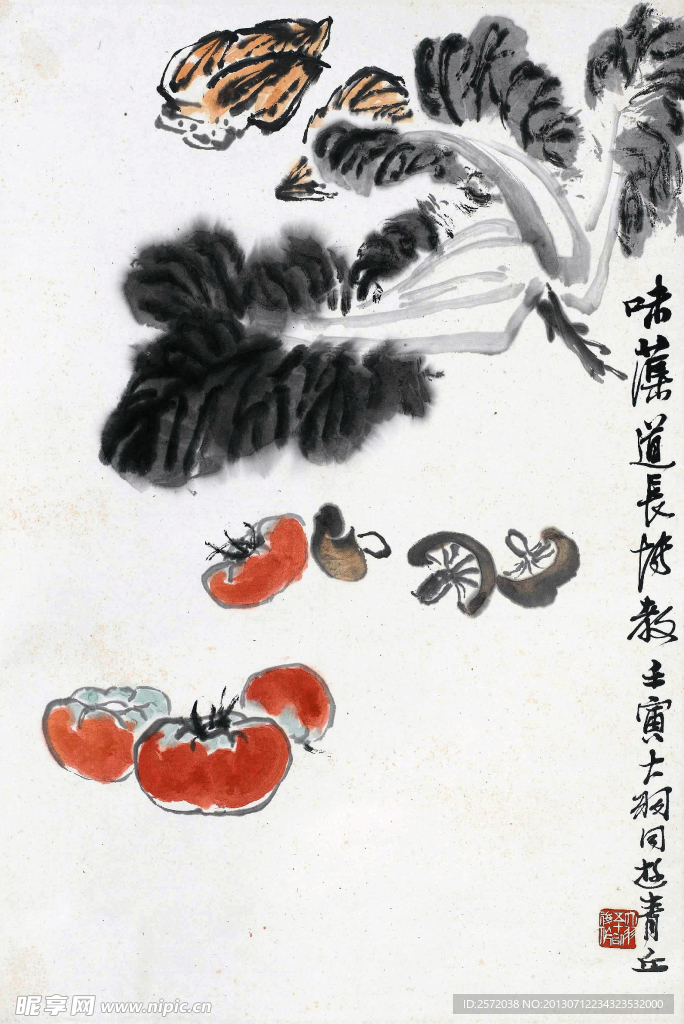 味蕅道長博教壬寅大羽同遊青丘
昵享网 www.nipic.cn
ID:2572038 NO:20130712234323532000